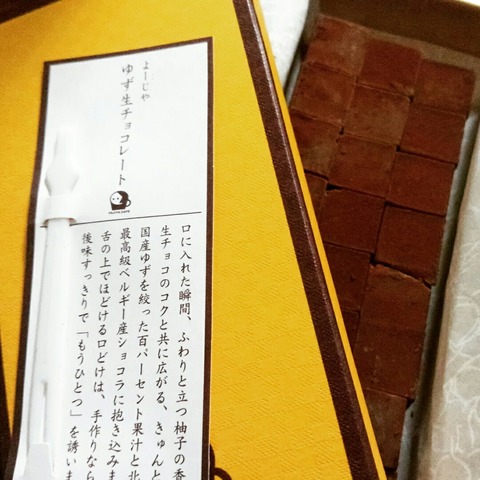 よーじや
ゆず生チョコレート
口に入れた瞬間、ふわりと立つ柚子の香
生チョコのコクと共に広がる、きゅんと
国産ゆずを絞った百パーセント果汁と北
最高級ベルギー産ショコラに抱き込みま
舌の上でほどける口どけは、手作りなら
後味すっきりで「もうひとつ」を誘いま